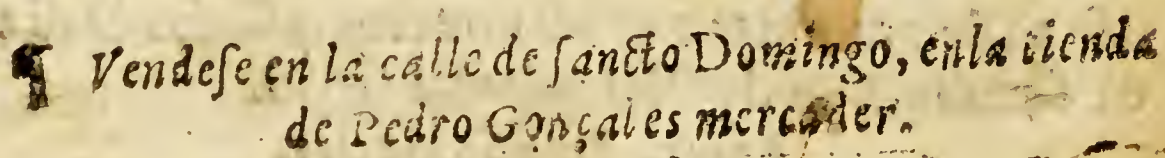 ¶ Vendeſe en la calle de ſancto Domingo, enla tienda
de Pedro Gonçales mercader.